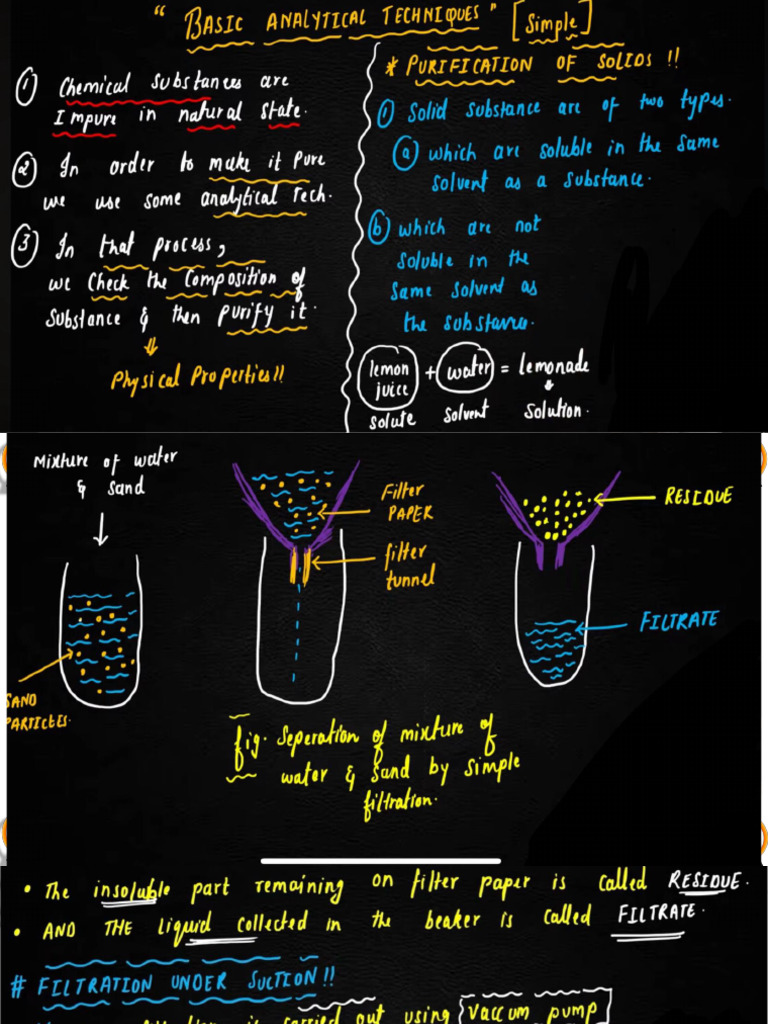 " BASIC ANALYTICAL TECHNIQUES" [Simple]
① Chemical Substances are
Impure in natural state.
② In order to make it Pure
we use some analytical Tech.
③ In that process,
we Check the Composition of
Substance & then purify it.
⇓
Physical Properties!!
* PURIFICATION OF SOLIDS !!
① Solid substance are of two types.
ⓐ which are soluble in the same
solvent as a substance.
ⓑ which are not
soluble in the
same solvent as
the substance.
lemon juice + water = lemonade
solute solvent solution.
Mixture of water
& sand
SAND
PARTICLES.
Filter
PAPER
filter
tunnel
RESIDUE
FILTRATE
fig. Seperation of mixture of
water & sand by simple
filtration.
• The insoluble part remaining on filter paper is called RESIDUE.
• AND THE liquid collected in the beaker is called FILTRATE.
# FILTRATION UNDER SUCTION!!
is carried out using vaccum pump